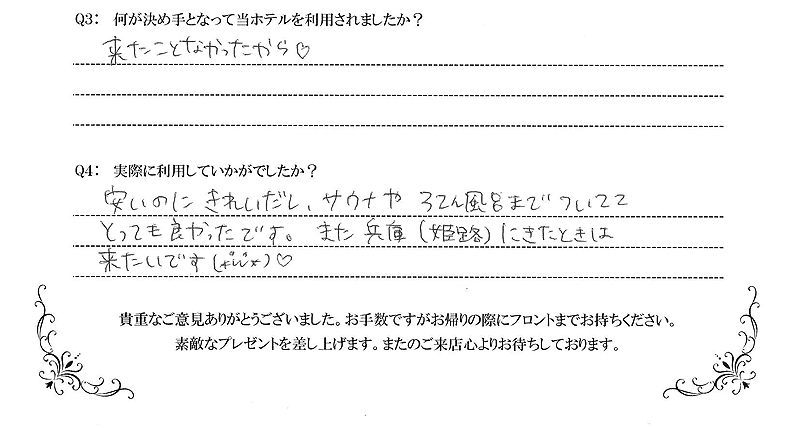 Q3: 何が決め手となって当ホテルを利用されましたか?
来たことなかったから♡
Q4: 実際に利用していかがでしたか?
安いのに きれいだし、サウナや ろてん風呂まで ついてて
とっても良かったです。また 兵庫(姫路)にきたときは
来たいです(*'∀'*)♡
貴重なご意見ありがとうございました。お手数ですがお帰りの際にフロントまでお持ちください。
素敵なプレゼントを差し上げます。またのご来店心よりお待ちしております。